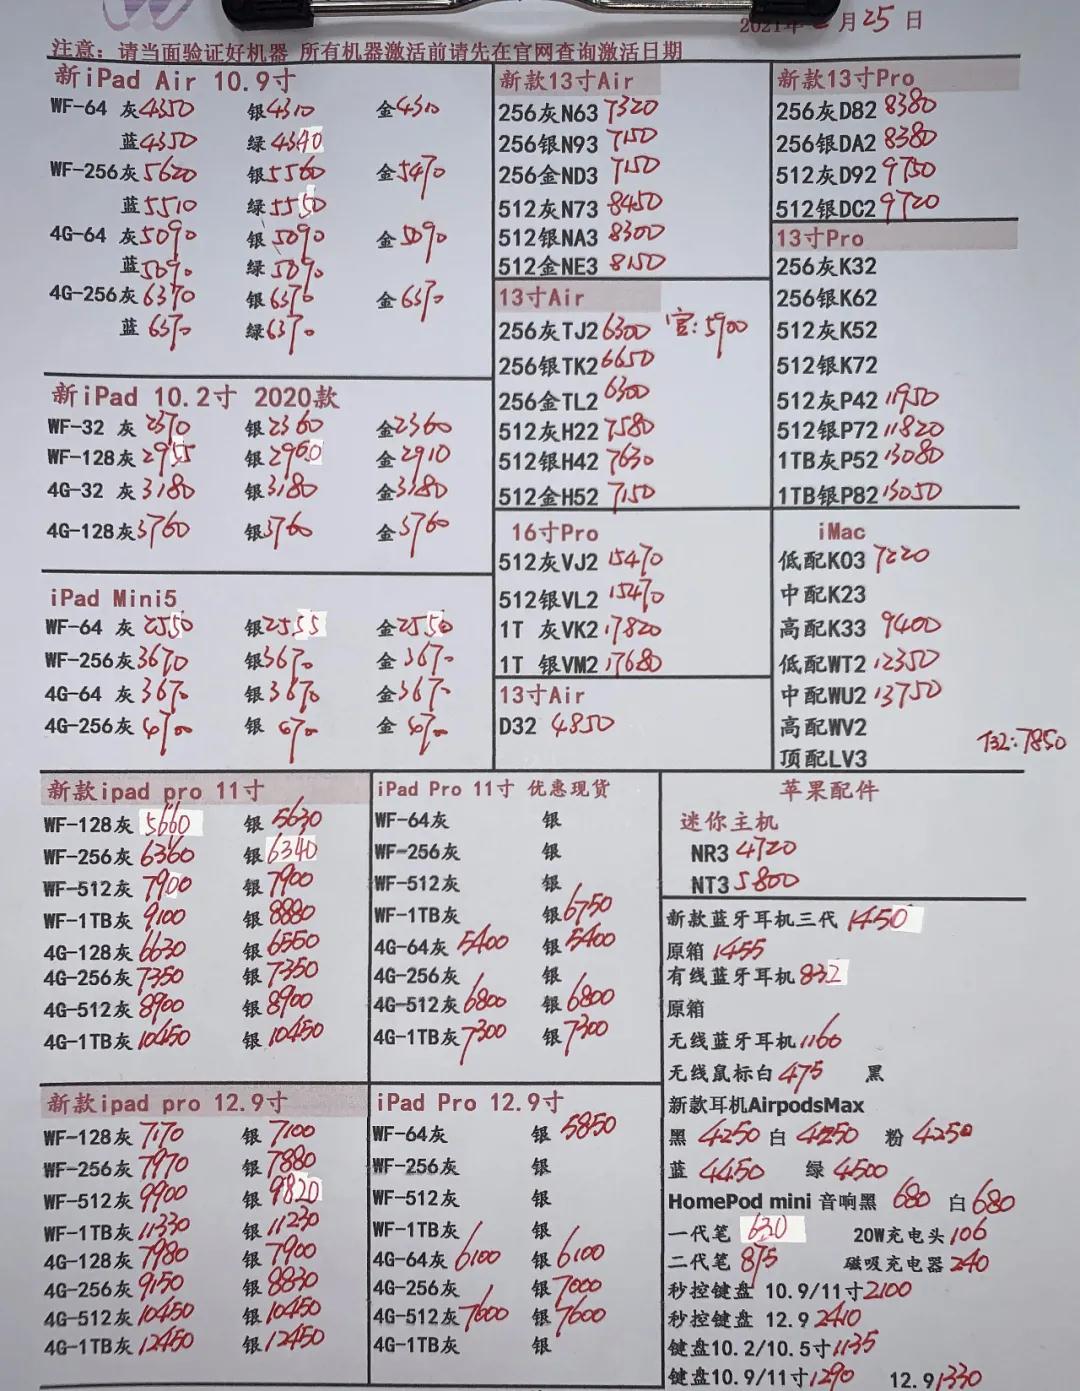 2021年 月25日
注意：请当面验证好机器 所有机器激活前请先在官网查询激活日期
新iPad Air 10.9寸
WF-64 灰4350 银4310 金4310
蓝4350 绿4340
WF-256灰5620 银5560 金5470
蓝5510 绿5550
4G-64 灰5090 银5090 金5090
蓝5090 绿5090
4G-256灰6370 银6370 金6370
蓝6370 绿6370
新iPad 10.2寸 2020款
WF-32 灰2370 银2360 金2360
WF-128灰2955 银2960 金2910
4G-32 灰3180 银3180 金3180
4G-128灰3760 银3760 金3760
iPad Mini5
WF-64 灰2550 银2555 金2550
WF-256灰3670 银3670 金3670
4G-64 灰3670 银3670 金3670
4G-256灰4700 银4700 金4700
新款13寸Air
256灰N63 7320
256银N93 7150
256金ND3 7150
512灰N73 8450
512银NA3 8300
512金NE3 8150
13寸Air
256灰TJ2 6300 官:5900
256银TK2 6650
256金TL2 6300
512灰H22 7580
512银H42 7630
512金H52 7150
16寸Pro
512灰VJ2 15470
512银VL2 15470
1T 灰VK2 17820
1T 银VM2 17680
13寸Air
D32 4850
新款13寸Pro
256灰D82 8380
256银DA2 8380
512灰D92 9750
512银DC2 9720
13寸Pro
256灰K32
256银K62
512灰K52
512银K72
512灰P42 11950
512银P72 11820
1TB灰P52 13080
1TB银P82 13050
iMac
低配K03 7220
中配K23
高配K33 9400
低配WT2 12350
中配WU2 13750
高配WV2
T32:7850
顶配LV3
新款ipad pro 11寸
WF-128灰 5660 银 5630
WF-256灰 6360 银 6340
WF-512灰 7900 银 7900
WF-1TB灰 9100 银 8880
4G-128灰 6630 银 6550
4G-256灰 7350 银 7350
4G-512灰 8900 银 8900
4G-1TB灰 10450 银 10450
新款ipad pro 12.9寸
WF-128灰 7170 银 7100
WF-256灰 7970 银 7880
WF-512灰 9900 银 9820
WF-1TB灰 11330 银 11230
4G-128灰 7980 银 7900
4G-256灰 9150 银 8830
4G-512灰 10450 银 10450
4G-1TB灰 12450 银 12450
iPad Pro 11寸 优惠现货
WF-64灰 银
WF-256灰 银
WF-512灰 银
WF-1TB灰 银6750
4G-64灰 5400 银5400
4G-256灰 银
4G-512灰 6800 银6800
4G-1TB灰 7300 银7300
iPad Pro 12.9寸
WF-64灰 银 5850
WF-256灰 银
WF-512灰 银
WF-1TB灰 银
4G-64灰 6100 银 6100
4G-256灰 银 7000
4G-512灰 7600 银 7600
4G-1TB灰 银
苹果配件
迷你主机
NR3 4720
NT3 5800
新款蓝牙耳机三代 1450
原箱 1455
有线蓝牙耳机 832
原箱
无线蓝牙耳机 1166
无线鼠标白 475 黑
新款耳机AirpodsMax
黑 4250 白 4250 粉 4250
蓝 4450 绿 4500
HomePod mini 音响黑 680 白 680
一代笔 630 20W充电头 106
二代笔 875 磁吸充电器 240
秒控键盘 10.9/11寸 2100
秒控键盘 12.9 2410
键盘10.2/10.5寸 1135
键盘10.9/11寸 1290 12.9 1330